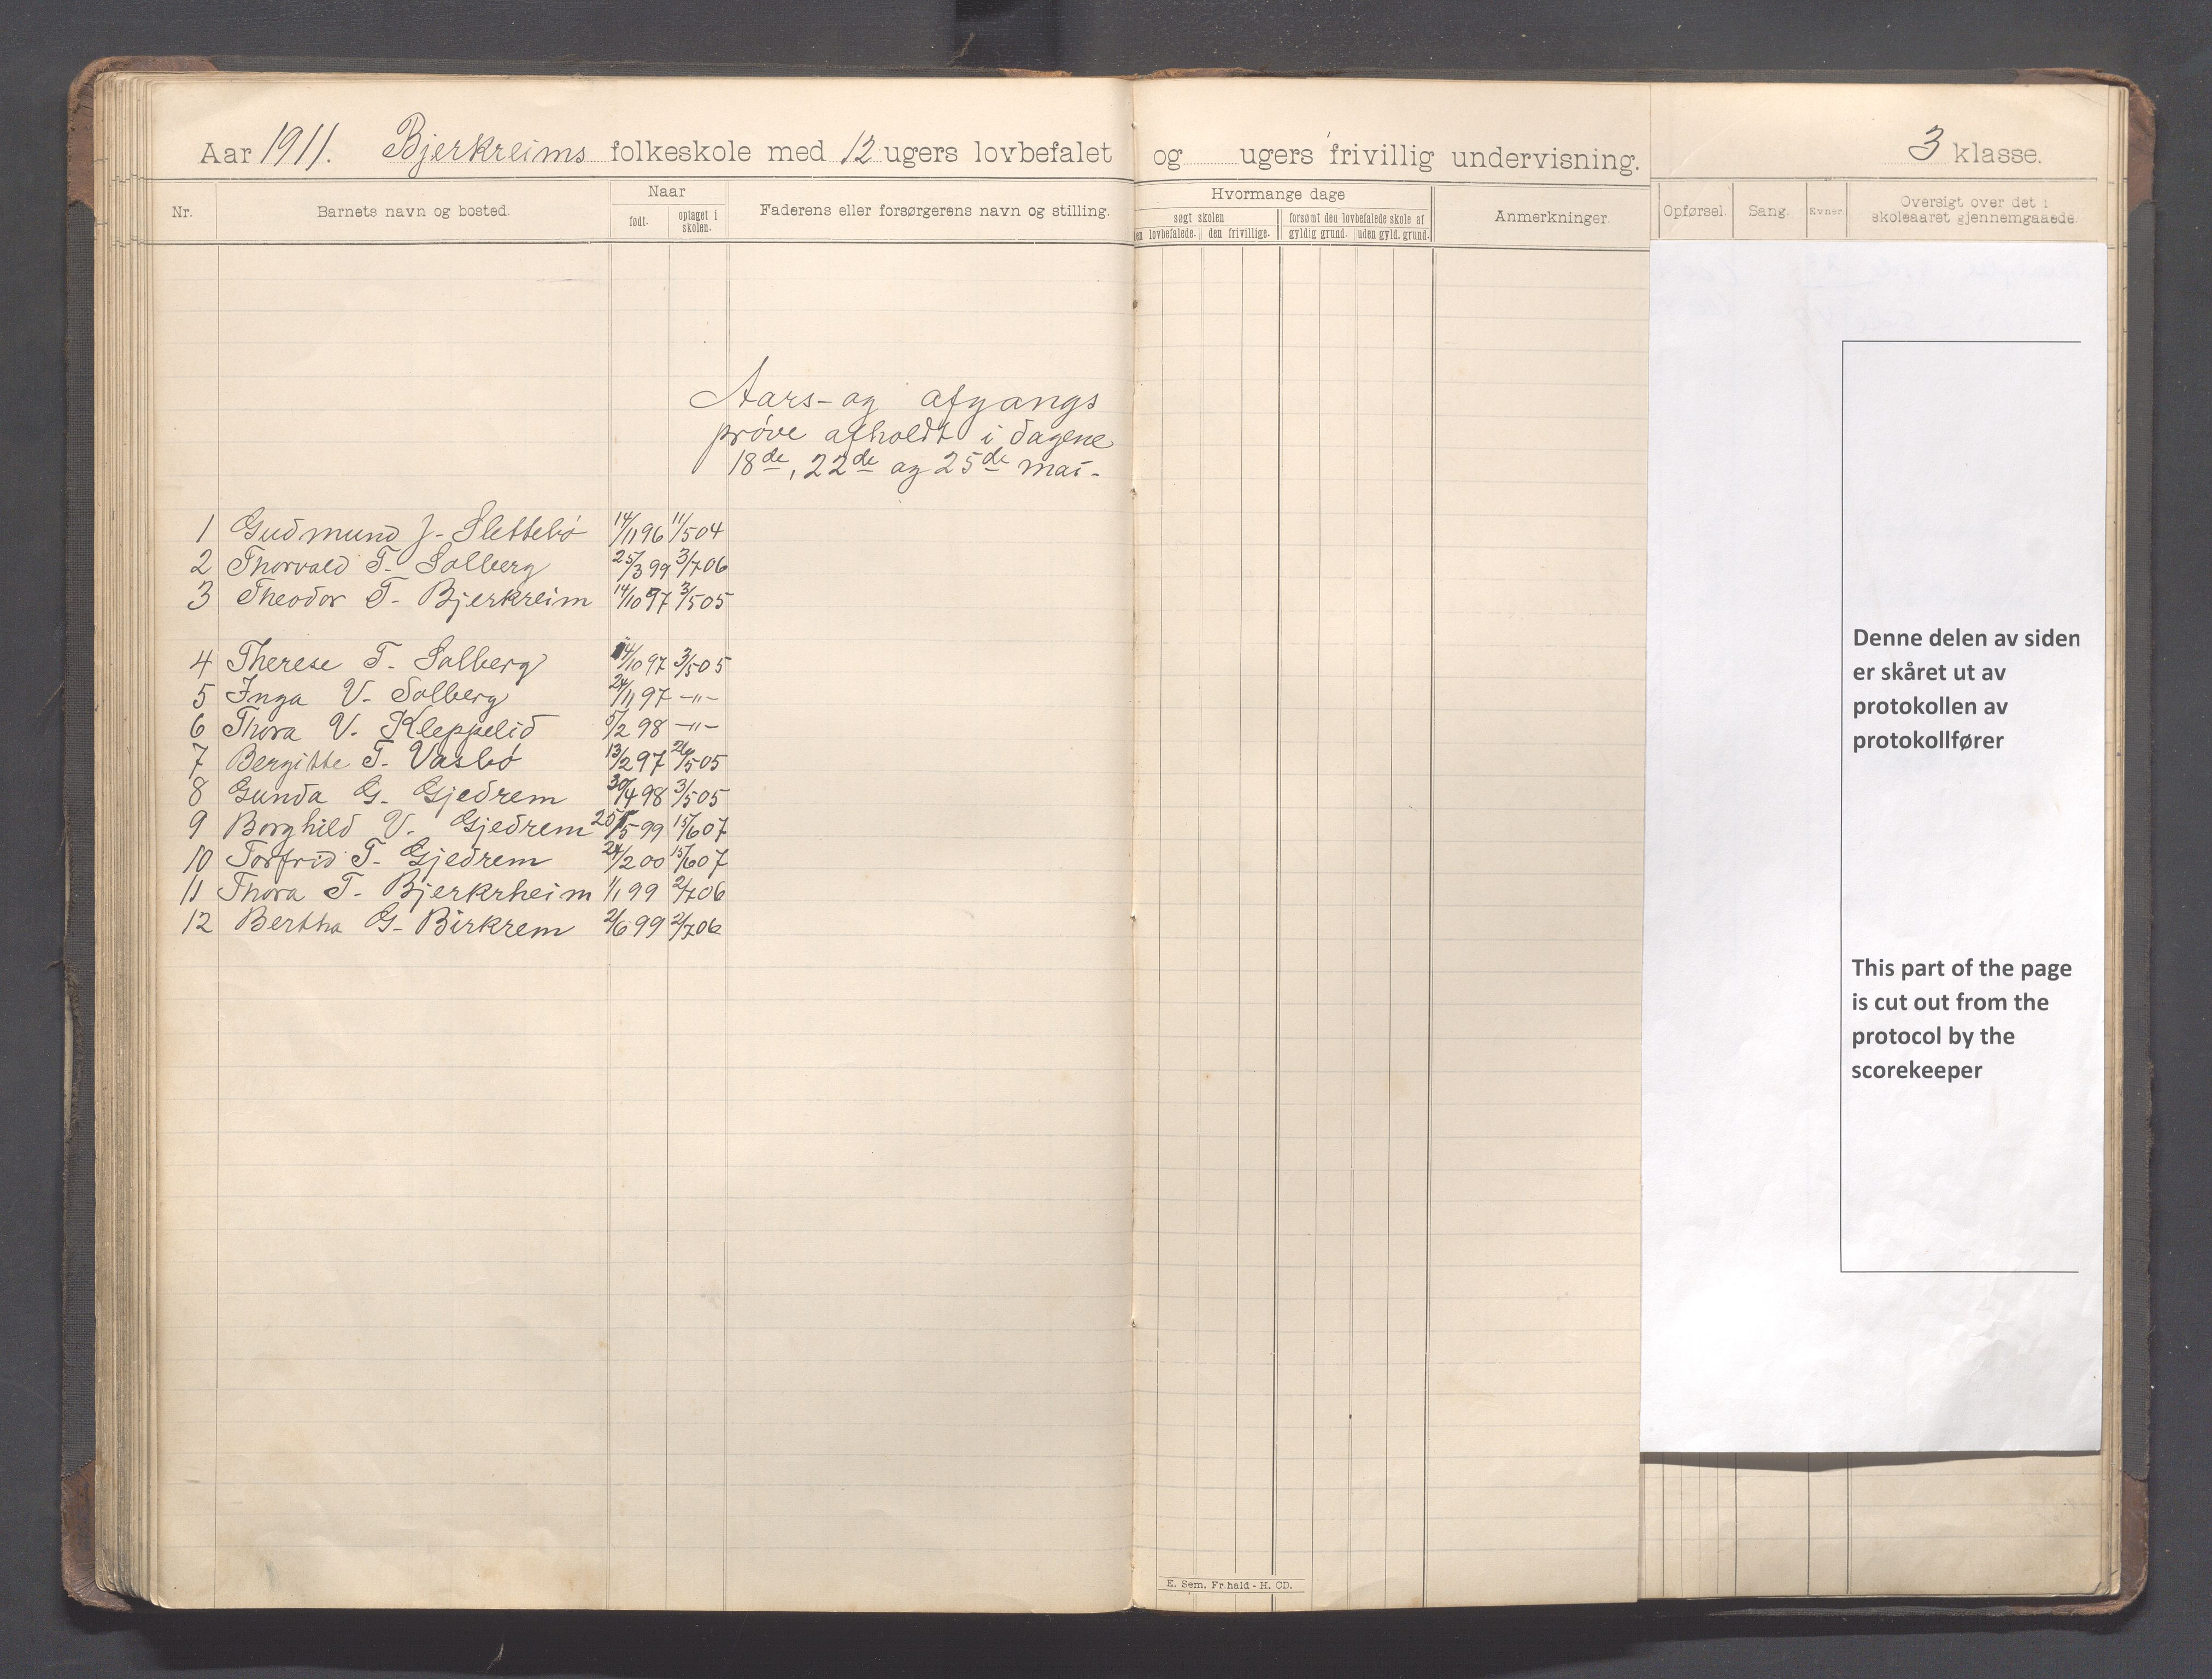 Aar 1911. Bjerkreims folkeskole med 12 ugers lovbefalet og ugers frivillig undervisning. 3 klasse.
Nr. Barnets navn og bosted. Naar Faderens eller forsørgerens navn og stilling. Hvormange dage Anmerkninger. Opførsel. Sang. Evner. Oversigt over det i skoleaaret gjennemgaaede.
født. optaget i skolen. søgt skolen forsømt den lovbefalede skole af
lovbefalede. den frivillige. gyldig grund. uden gyld. grund.
Aars- og afgangs
prøve afholdt i dagene
18de, 22de og 25de mai-
1 Gudmund J. Slettebø 14/11 96 11/5 04
2 Thorvald T. Solberg 25/3 99 3/7 06
3 Theodor T. Bjerkreim 14/10 97 3/5 05
4 Therese T. Solberg 14/10 97 3/5 05
5 Inga V. Solberg 24/11 97 -"-
6 Thora V. Kleppelid 5/2 98 -"-
7 Bergitte T. Vasbø 13/2 97 26/5 05
8 Gunda G. Gjedrem 30/4 98 3/5 05
9 Borghild V. Gjedrem 25/5 99 15/6 07
10 Torfrid T. Gjedrem 24/2 00 15/6 07
11 Thora T. Bjerkrheim 1/1 99 2/7 06
12 Bertha G. Birkrem 2/6 99 2/7 06
Denne delen av siden
er skåret ut av
protokollen av
protokollfører
This part of the page
is cut out from the
protocol by the
scorekeeper
E. Sem. Fr.hald - H. CD.